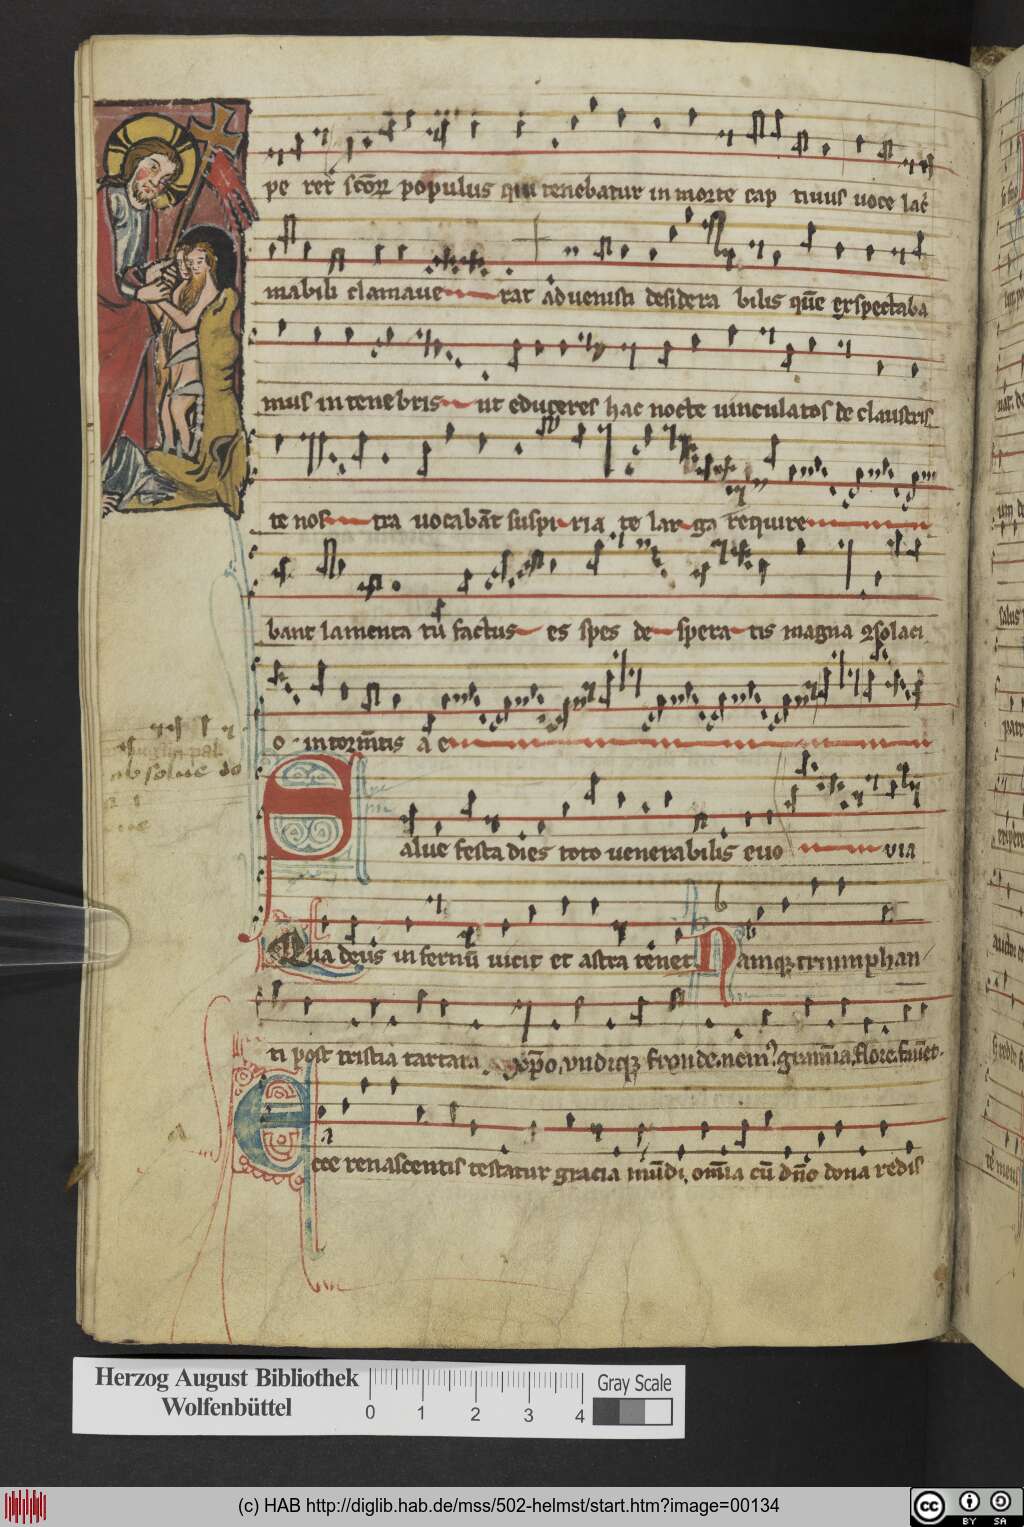 pe ret sc̄oꝝ populus qui tenebatur in morte cap tiuus uoce lac̄
mabili clamaue rat aduenisti desidera bilis quē expectaba
mus in tenebris ut educeres hac nocte uinculatos de claustris
te nos tra uocabāt suspi ria te lar ga require
bant lamenta tū factus es spes de spera tis magna ꝯsolaci
o in torm̄tis a e
Salue festa dies toto uenerabilis euo uia
Qua deus in fernū uicit et astra tenet Namqꝫ triumphan
ti post tristia tartara xp̄o, vndiqꝫ fronde nem⁹ gramīa flore fauēt.
Ecce renascentis testatur gracia mūdi, om̄ia cū dn̄o dona redis
absolue do
Herzog August Bibliothek
Wolfenbüttel
0 1 2 3 4
Gray Scale
(c) HAB http://diglib.hab.de/mss/502-helmst/start.htm?image=00134
cc BY SA